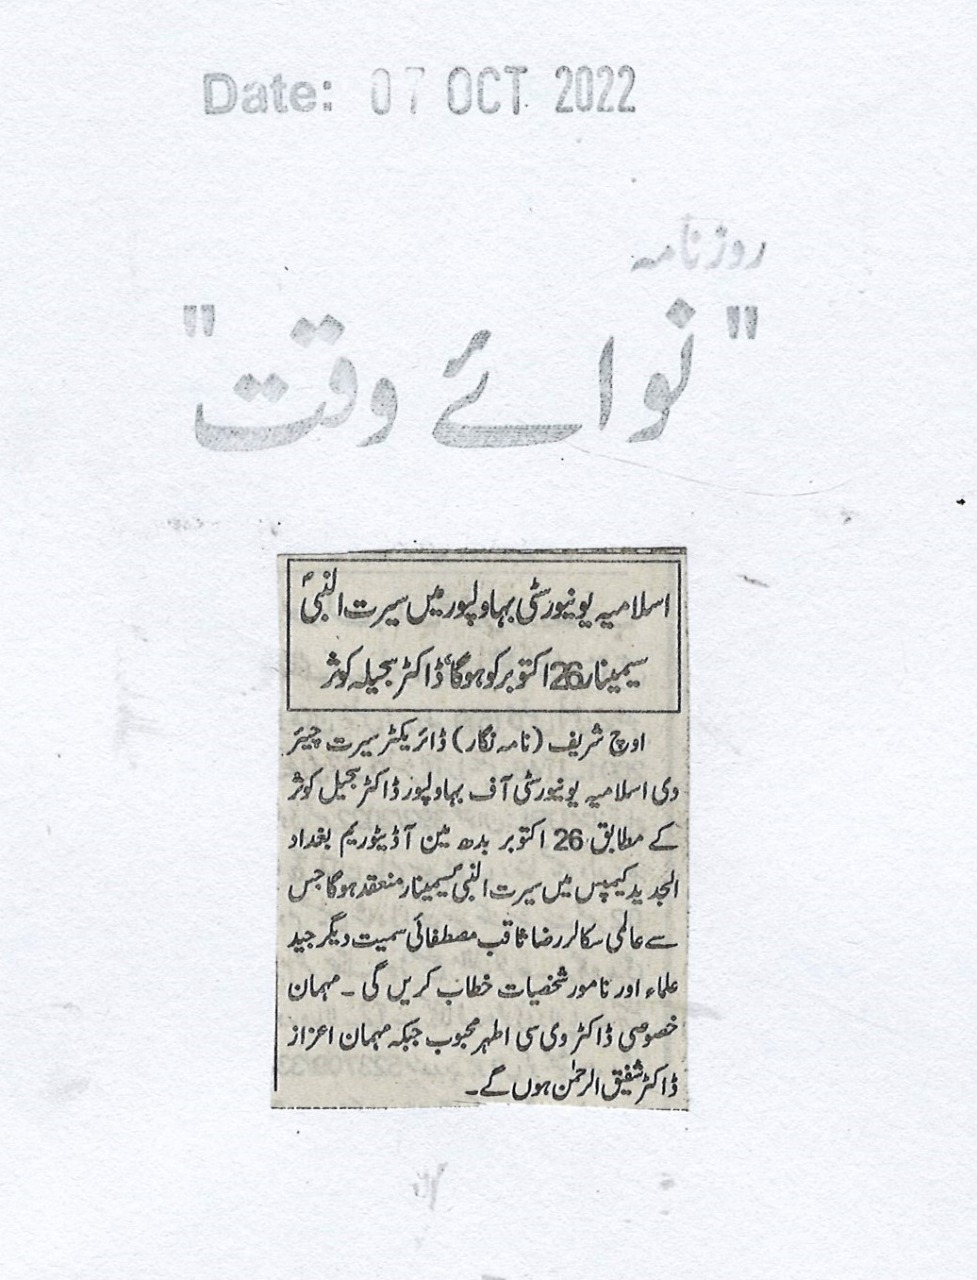 Date: 07 OCT 2022
روزنامہ
"نوائے وقت"
اسلامیہ یونیورسٹی بہاولپور میں سیرت النبیؐ
سیمینار 26 اکتوبر کو ہوگا‘ ڈاکٹر سجیلہ کوثر
اوچ شریف (نامہ نگار) ڈائریکٹر سیرت چیئر
دی اسلامیہ یونیورسٹی آف بہاولپور ڈاکٹر سجیل کوثر
کے مطابق 26 اکتوبر بدھ مین آڈیٹوریم بغداد
الجدید کیمپس میں سیرت النبیؐ سیمینار منعقد ہوگا جس
سے عالمی سکالر رضا ثاقب مصطفائی سمیت دیگر جید
علماء اور نامور شخصیات خطاب کریں گی ۔ مہمان
خصوصی ڈاکٹر وی سی اطہر محبوب جبکہ مہمان اعزاز
ڈاکٹر شفیق الرحمٰن ہوں گے۔